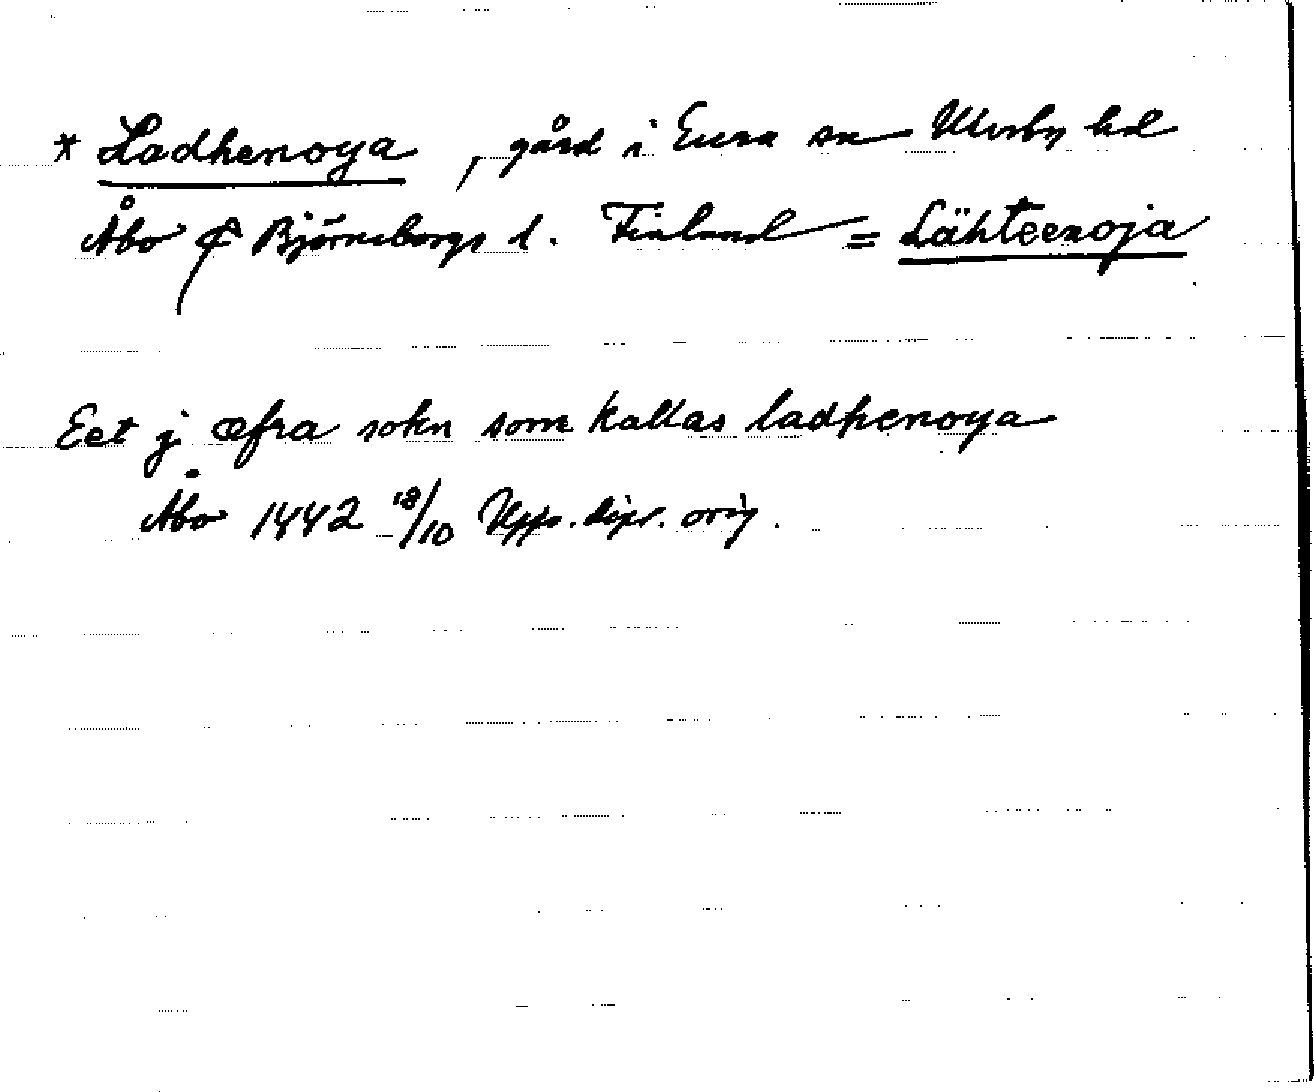 * Ladhenoya, gård i Eura sn Ulvsby hd
Åbo & Björneborgs l. Finland = Lähteenoja
Eet j æfra sokn som kallas ladhenoya
Åbo 1442 18/10 Upps. dipl. orig.